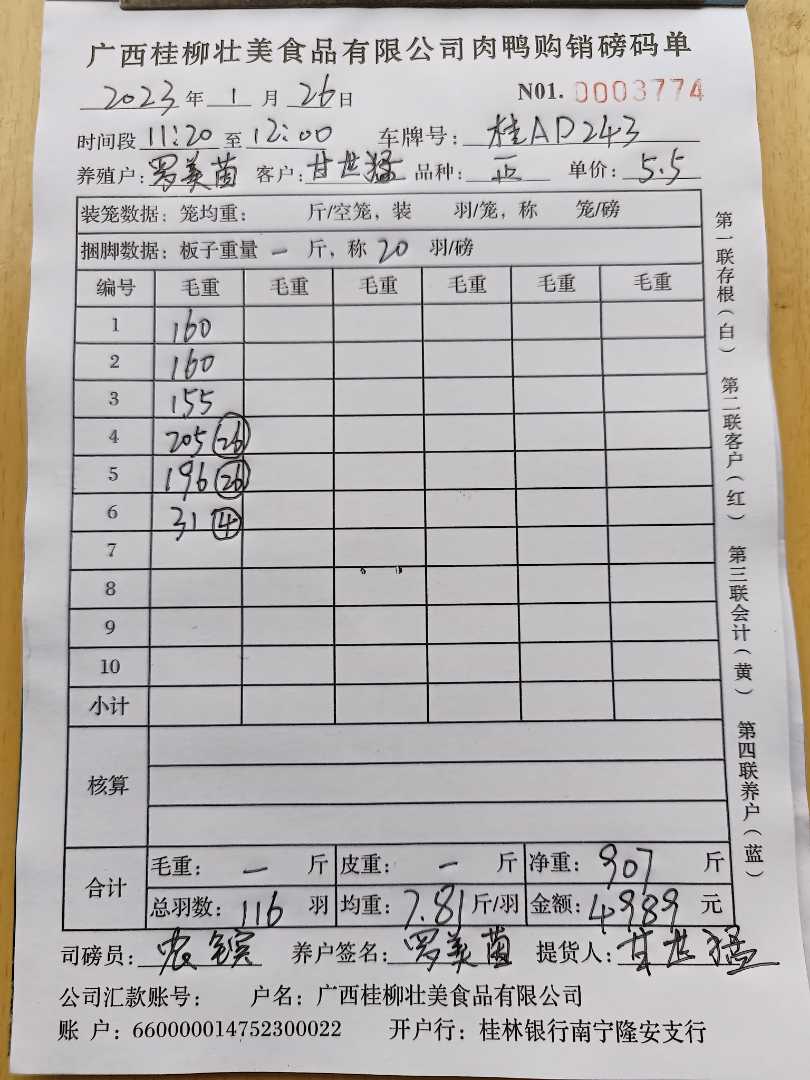 广西桂柳壮美食品有限公司肉鸭购销磅码单
2023年 1 月 26日 N01. 0003774
时间段 11:20 至 12:00 车牌号: 桂AD243
养殖户: 罗美茵 客户: 甘世猛 品种: 正 单价: 5.5
装笼数据: 笼均重: 斤/空笼, 装 羽/笼, 称 笼/磅
捆脚数据: 板子重量 一 斤, 称 20 羽/磅
编号 毛重 毛重 毛重 毛重 毛重 毛重
1 160
2 160
3 155
4 205 26
5 196 26
6 31 4
7
8
9
10
小计
核算
合计
毛重: 一 斤 皮重: 一 斤 净重: 907 斤
总羽数: 116 羽 均重: 7.81 斤/羽 金额: 4989 元
司磅员: 农 养户签名: 罗美茵 提货人: 甘世猛
公司汇款账号: 户名: 广西桂柳壮美食品有限公司
账 户: 660000014752300022 开户行: 桂林银行南宁隆安支行
第一联存根(白)
第二联客户(红)
第三联会计(黄)
第四联养户(蓝)